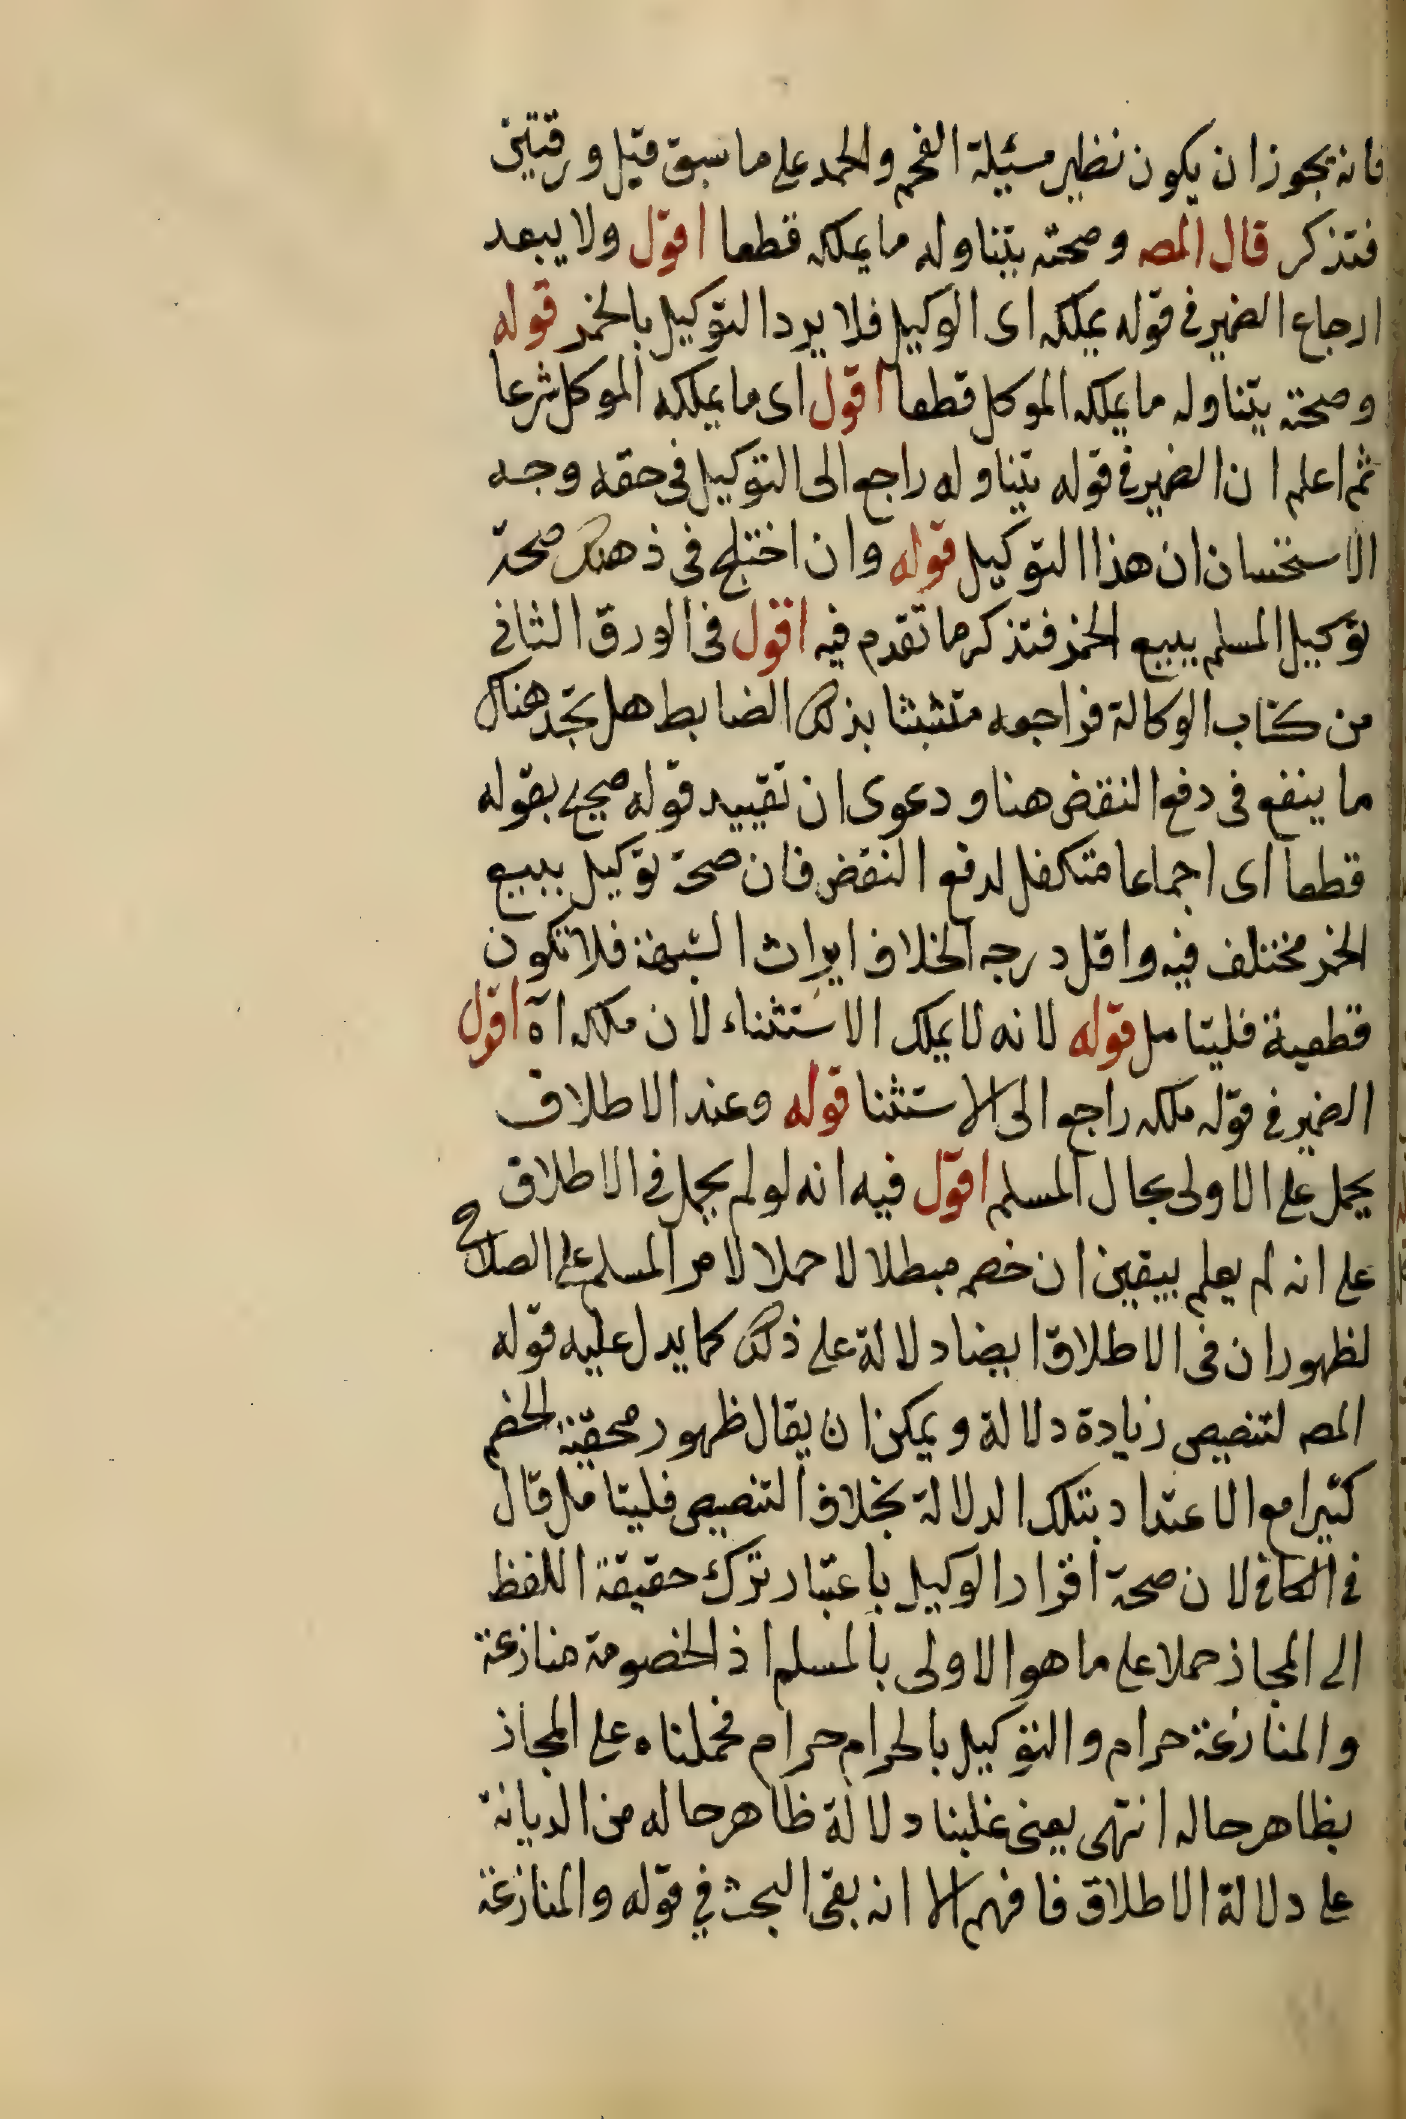 فانه يجوز ان يكون نظير مسئلة الفحم والحمد على ما سبق قبيل ورقتين
فتذكر قال المصـ وصحته بتناوله ما يملكه قطعا اقول ولا يبعد
ارجاع الضمير في قوله يملكه اى الوكيل فلا يرد التوكيل بالخمر قوله
وصحته بتناوله ما يملكه الموكل قطعا اقول اى ما يملكه الموكل شرعا
ثم اعلم ان الضمير في قوله يتناوله راجع الى التوكيل في حقه وجه
الاستحسان ان هذا التوكيل قوله وان اختلج في ذهنك صحة
توكيل المسلم ببيع الخمر فتذكر ما تقدم فيه اقول في الورق الثاني
من كتاب الوكالة فراجعه متشبثا بذلك الضابط هل تجد هناك
ما ينفع في دفع النقض هنا ودعوى ان تقييد قوله صحيح بقوله
قطعا اى اجماعا متكفل لدفع النقض فان صحة توكيل ببيع
الخمر مختلف فيه واقل درجه الخلاف ايراث الشبهة فلا تكون
قطعية فليتامل قوله لانه لا يملك الاستثناء لان ملكه اه اقول
الضمير في قوله ملكه راجع الى الاستثنا قوله وعند الاطلاق
يحمل على الاولى بحال المسلم اقول فيه انه لو لم يحمل في الاطلاق
على انه لم يعلم بيقين ان خصم مبطلا لا حملا لامر المسلم على الصلاح
لظهور ان في الاطلاق ايضا دلالة على ذلك كما يدل عليه قوله
المصـ لتنصيص زيادة دلالة ويمكن ان يقال ظهور محقية الخصم
كثيرا مع الاعتداد بتلك الدلالة بخلاف التنصيص فليتامل قال
في الكافي لان صحة اقرار الوكيل باعتبار ترك حقيقة اللفظ
الى المجاز حملا على ما هو الاولى بالمسلم اذ الخصومة منازعة
والمنازعة حرام والتوكيل بالحرام حرام فحملناه على المجاز
بظاهر حاله انتهى يعنى غلبنا دلالة ظاهر حاله من الديانة
على دلالة الاطلاق فافهم الا انه بقى البحث في قوله والمنازعة